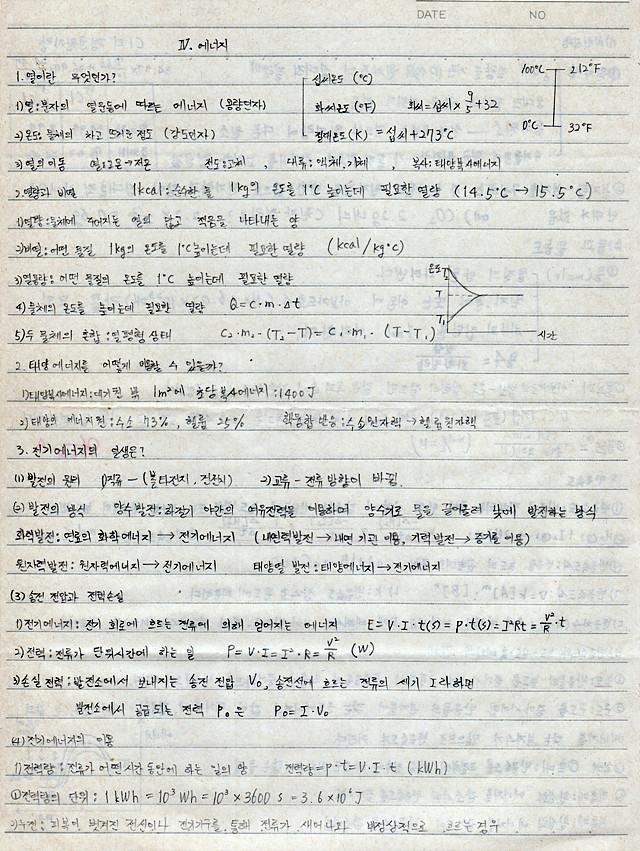 DATE NO
Ⅳ. 에너지
1. 열이란 무엇인가?
섭씨온도 (°C)
1) 열: 분자의 열운동에 따르는 에너지 (용량인자)
화씨온도 (°F) 화씨 = 섭씨 × 9/5 + 32
100°C 212°F
2) 온도: 물체의 차고 뜨거운 정도 (강도인자)
절대온도 (K) = 섭씨 + 273°C
0°C 32°F
3) 열의 이동 열: 고온 → 저온 전도: 고체, 대류: 액체, 기체, 복사: 태양복사에너지
2. 열량과 비열 1kcal: 순수한 물 1kg의 온도를 1°C 높이는데 필요한 열량 (14.5°C → 15.5°C)
1) 열량: 물체에 주어지는 열의 많고 적음을 나타내는 양
2) 비열: 어떤 물질 1kg의 온도를 1°C 높이는데 필요한 열량 (kcal/kg°C)
3) 열용량: 어떤 물질의 온도를 1°C 높이는데 필요한 열량
4) 물체의 온도를 높이는데 필요한 열량 Q = C·m·Δt
5) 두 물체의 혼합: 열평형 상태 C₂·m₂·(T₂-T) = C₁·m₁·(T-T₁)
온도 T₂ T T₁ 시간
2. 태양에너지를 어떻게 이용할 수 있을까?
1) 태양복사에너지: 대기권 밖 1m²에 초당 복사에너지: 1400J
2) 태양의 에너지원: 수소 73%, 헬륨 25% 핵융합 반응: 수소원자핵 → 헬륨원자핵
3. 전기에너지의 일생은?
(1) 발전의 원리 1) 직류 - (볼타전지, 건전지) 2) 교류 - 전류방향이 바뀜
(2) 발전의 방식 양수발전: 화전기 야간의 여유전력을 이용하여 양수기로 물을 끌어올려 낮에 발전하는 방식
화력발전: 연료의 화학에너지 → 전기에너지 (내연력발전 → 내연 기관 이용, 기력 발전 → 증기를 이용)
원자력발전: 원자력에너지 → 전기에너지 태양열 발전: 태양에너지 → 전기에너지
(3) 송전 전압과 전력손실
1) 전기에너지: 전기 회로에 흐르는 전류에 의해 얻어지는 에너지 E = V·I·t(s) = P·t(s) = I²Rt = V²/R·t
2) 전력: 전류가 단위시간에 하는 일 P = V·I = I²·R = V²/R (W)
3) 손실 전력: 발전소에서 보내지는 송전 전압 V₀, 송전선에 흐르는 전류의 세기 I라하면
발전소에서 공급되는 전력 P₀은 P₀ = I·V₀
(4) 전기에너지의 이동
1) 전력량: 전류가 어떤 시간 동안에 하는 일의 양 전력량 = P·t = V·I·t (kWh)
① 전력량의 단위: 1kWh = 10³ Wh = 10³ × 3600 s = 3.6 × 10⁶ J
2) 누전: 피복이 벗겨진 전선이나 전기기구를 통해 전류가 새어나와 비정상적으로 흐르는 경우